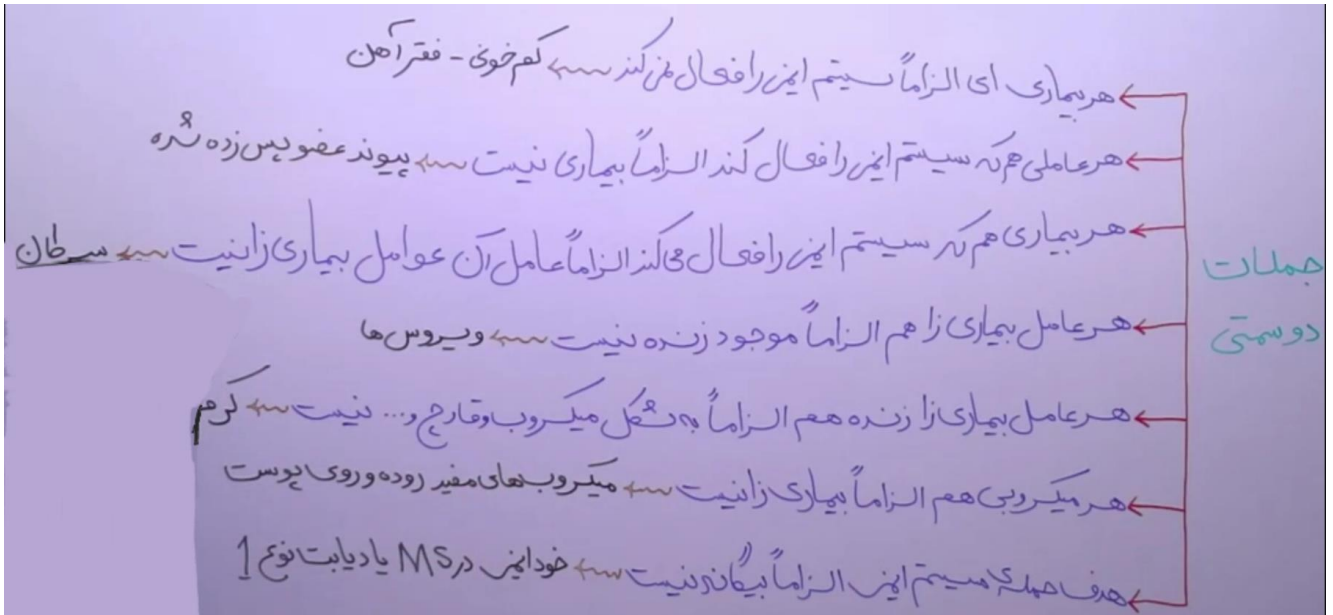 هر بیماری ای الزاماً سیتم ایمنی را فعال نمی کند ← کم خونی - فقر آهن
هر عاملی هم که سیستم ایمنی را فعال کند الزاماً بیماری نیست ← پیوند عضو پس زده شده
هر بیماری هم که سیستم ایمنی را فعال می کند الزاماً عامل آن عوامل بیماری زا نیست ← سرطان
جملات
دوستی
هر عامل بیماری زا هم الزاماً موجود زنده نیست ← ویروس ها
هر عامل بیماری زا زنده هم الزاماً به شکل میکروب و قارچ و... نیست ← کرم
هر میکروبی هم الزاماً بیماری زا نیست ← میکروب های مفید روده و روی پوست
هدف حمله ی سیستم ایمنی الزاماً بیگانه نیست ← خود ایمنی در MS یا دیابت نوع 1